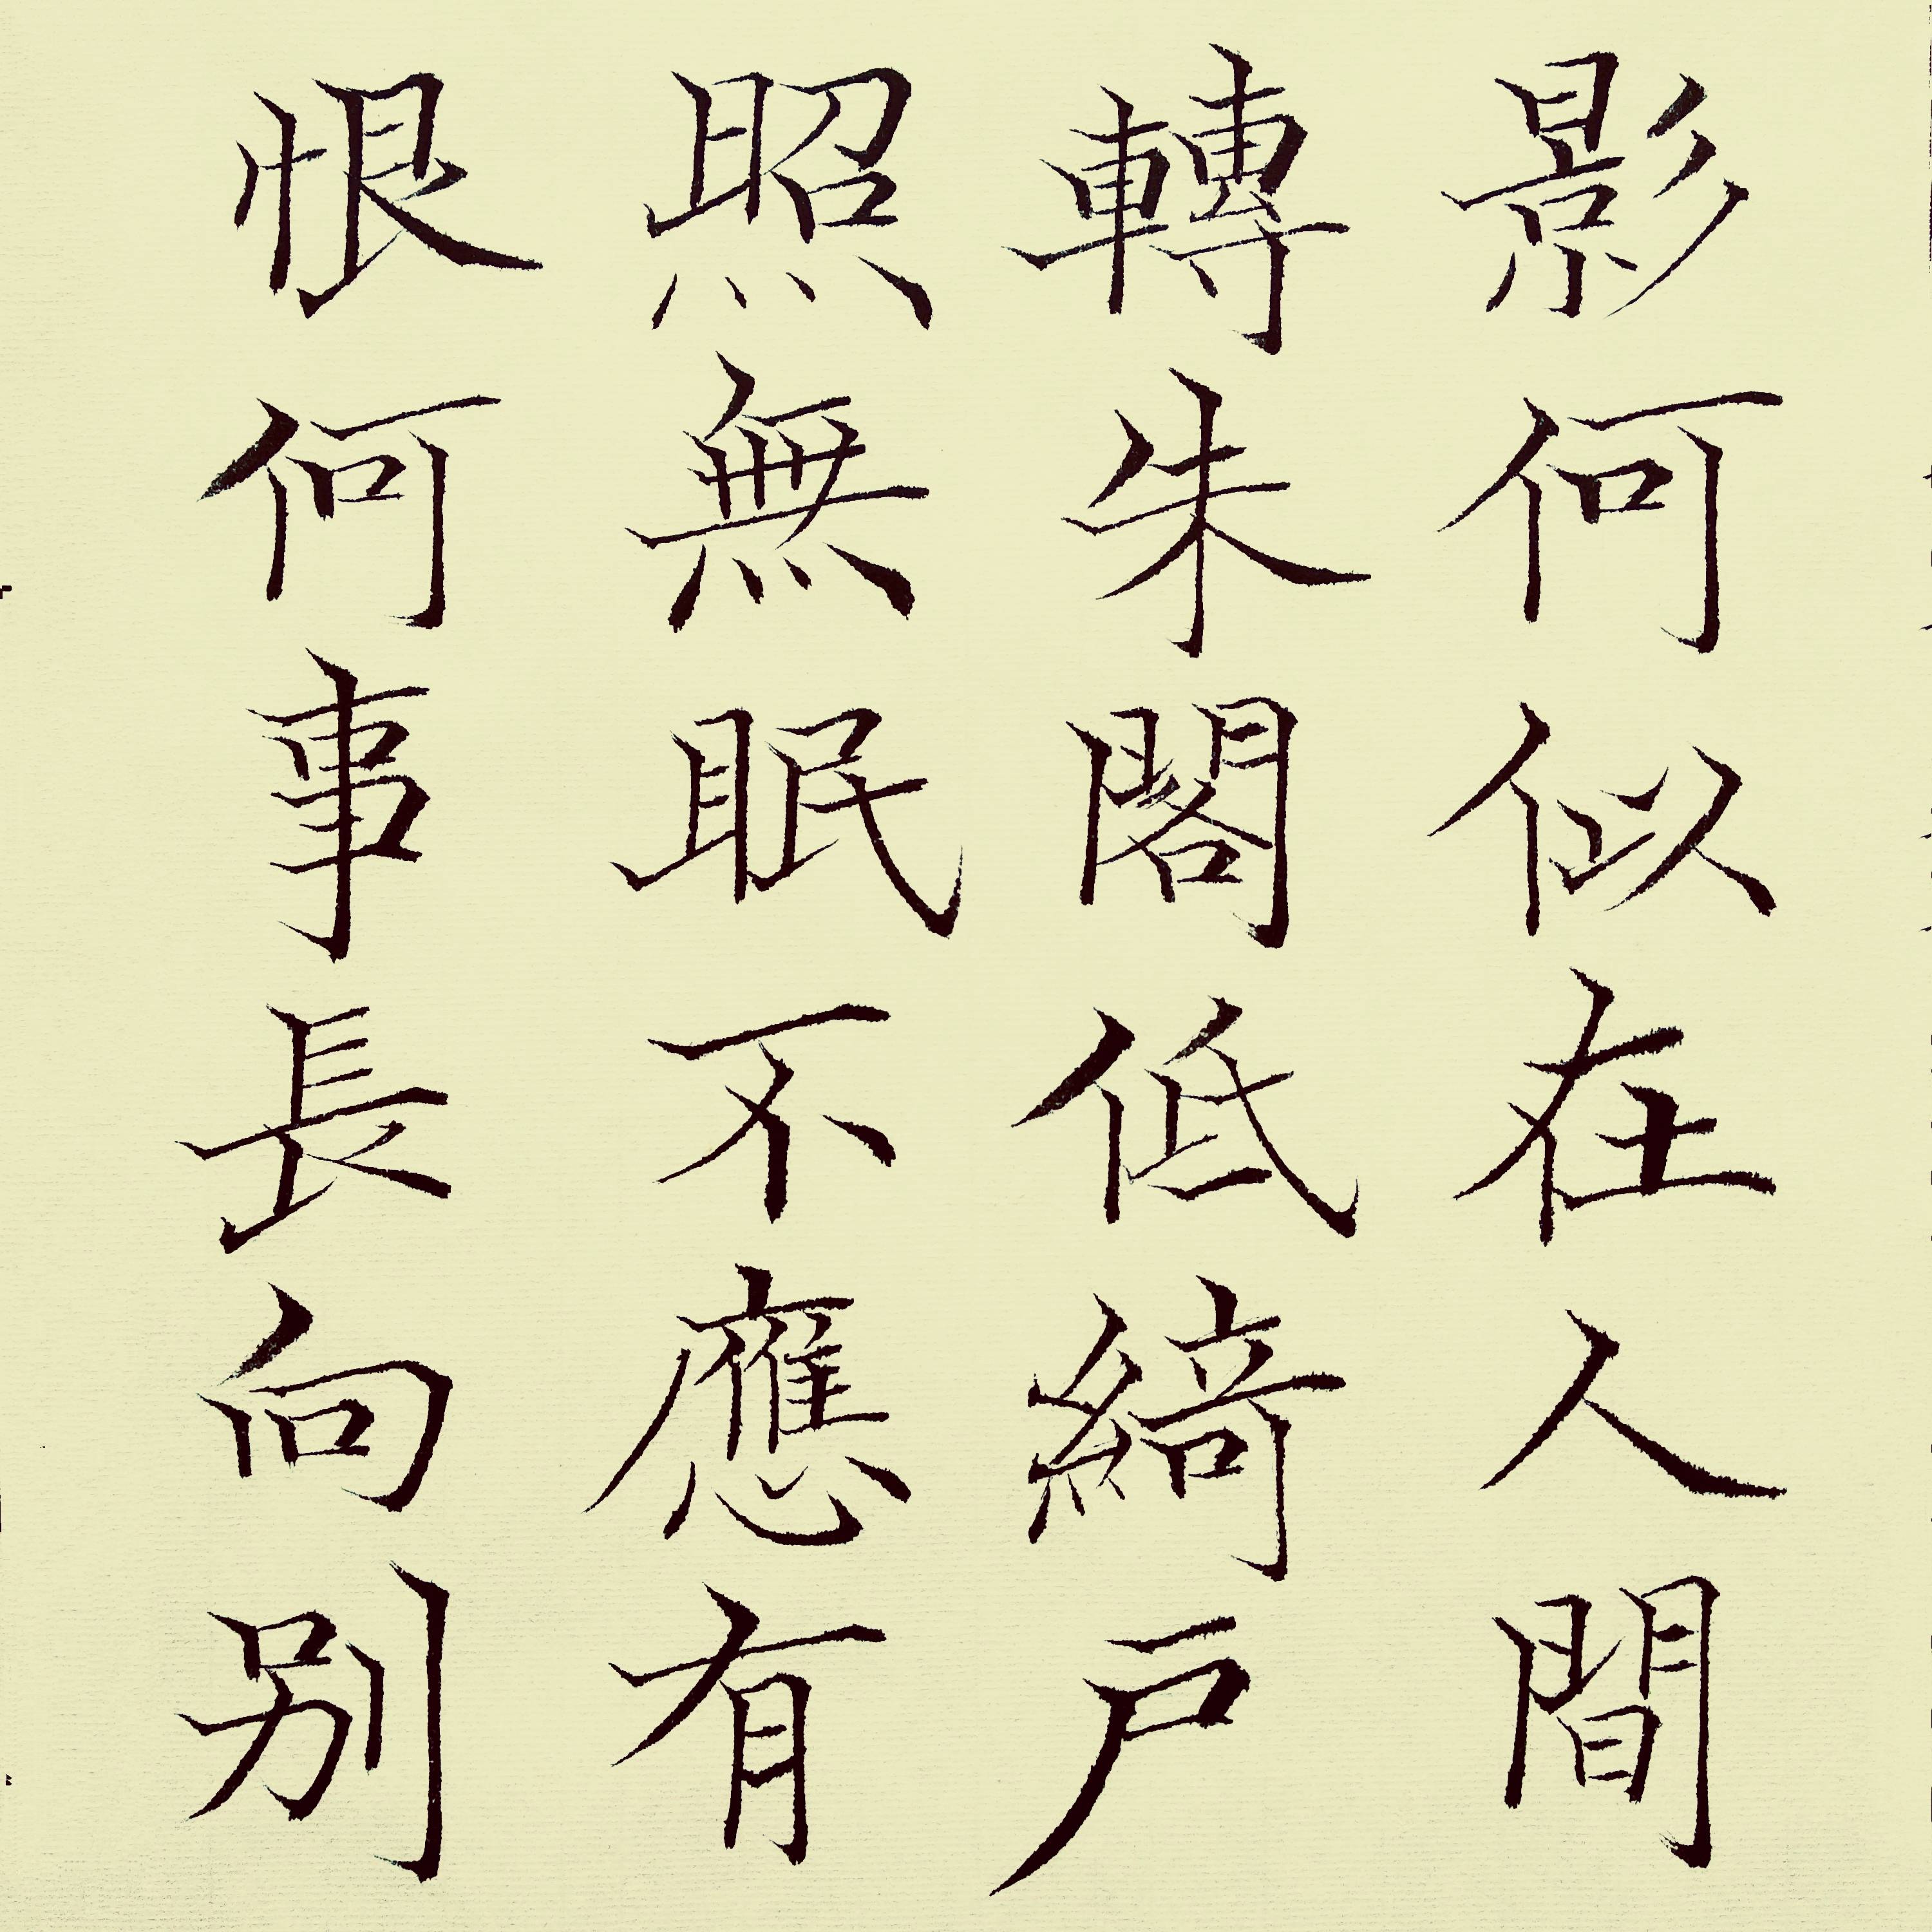 影何似在人間
轉朱閣低綺户
照無眠不應有
恨何事長向别